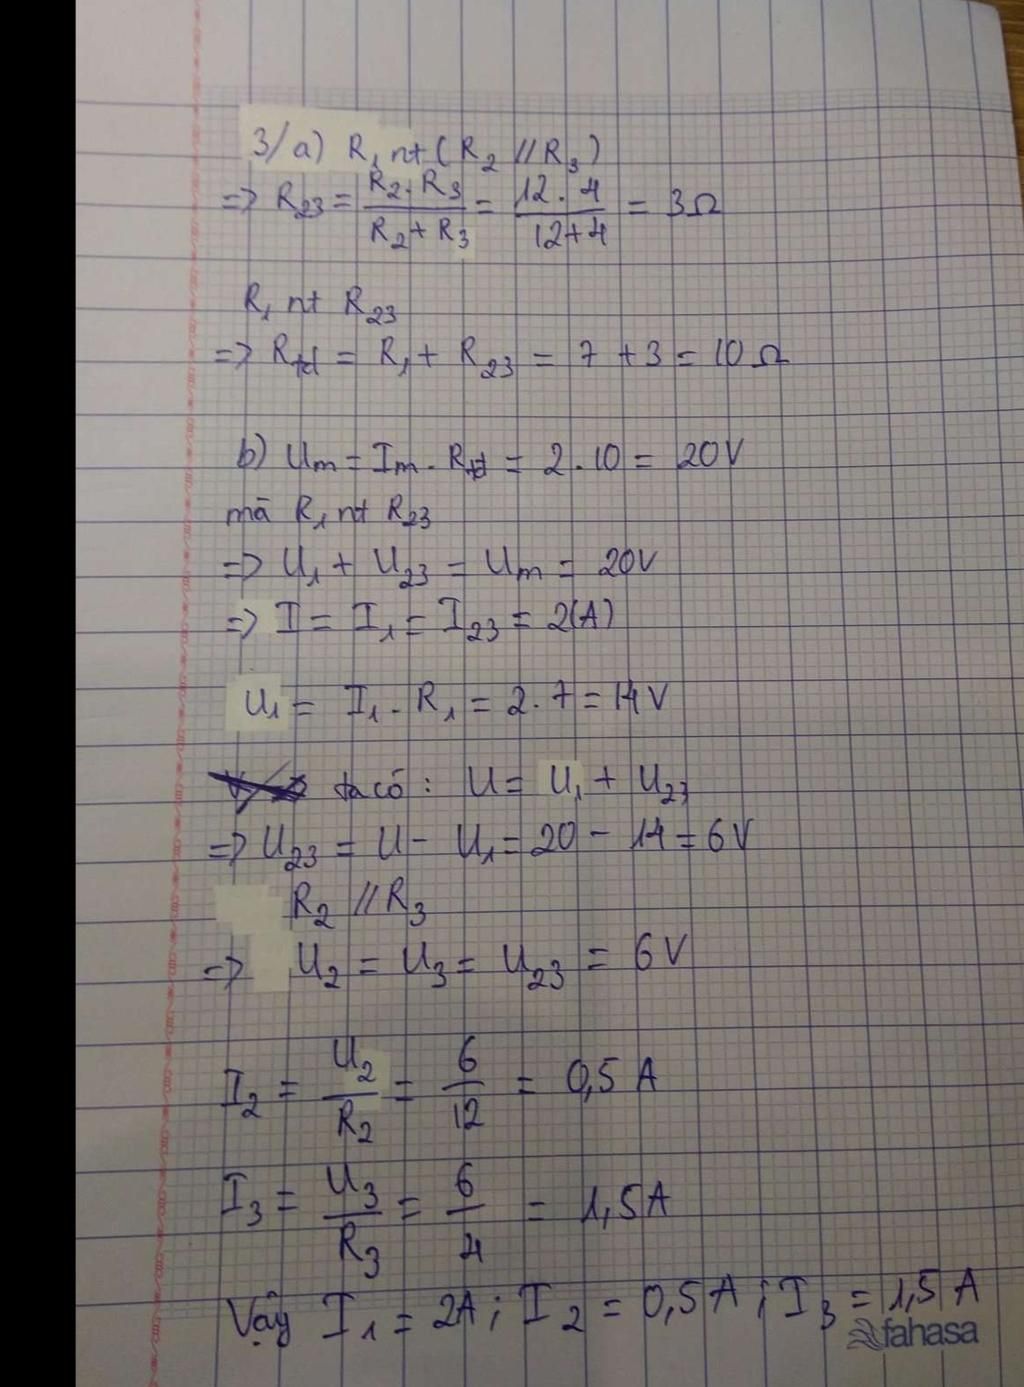 3/a) R₁ nt (R₂ // R₃)
=> R₂₃ = R₂.R₃/R₂+R₃ = 12.4/12+4 = 3Ω
R₁ nt R₂₃
=> Rtđ = R₁ + R₂₃ = 7 + 3 = 10Ω
b) Um = Im . Rtđ = 2.10 = 20V
mà R₁ nt R₂₃
=> U₁ + U₂₃ = Um = 20V
=> I = I₁ = I₂₃ = 2(A)
U₁ = I₁ . R₁ = 2.7 = 14V
ta có : U = U₁ + U₂₃
=> U₂₃ = U - U₁ = 20 - 14 = 6V
R₂ // R₃
=> U₂ = U₃ = U₂₃ = 6V
I₂ = U₂/R₂ = 6/12 = 0,5 A
I₃ = U₃/R₃ = 6/4 = 1,5A
Vậy I₁ = 2A ; I₂ = 0,5A ; I₃ = 1,5 A
fahasa